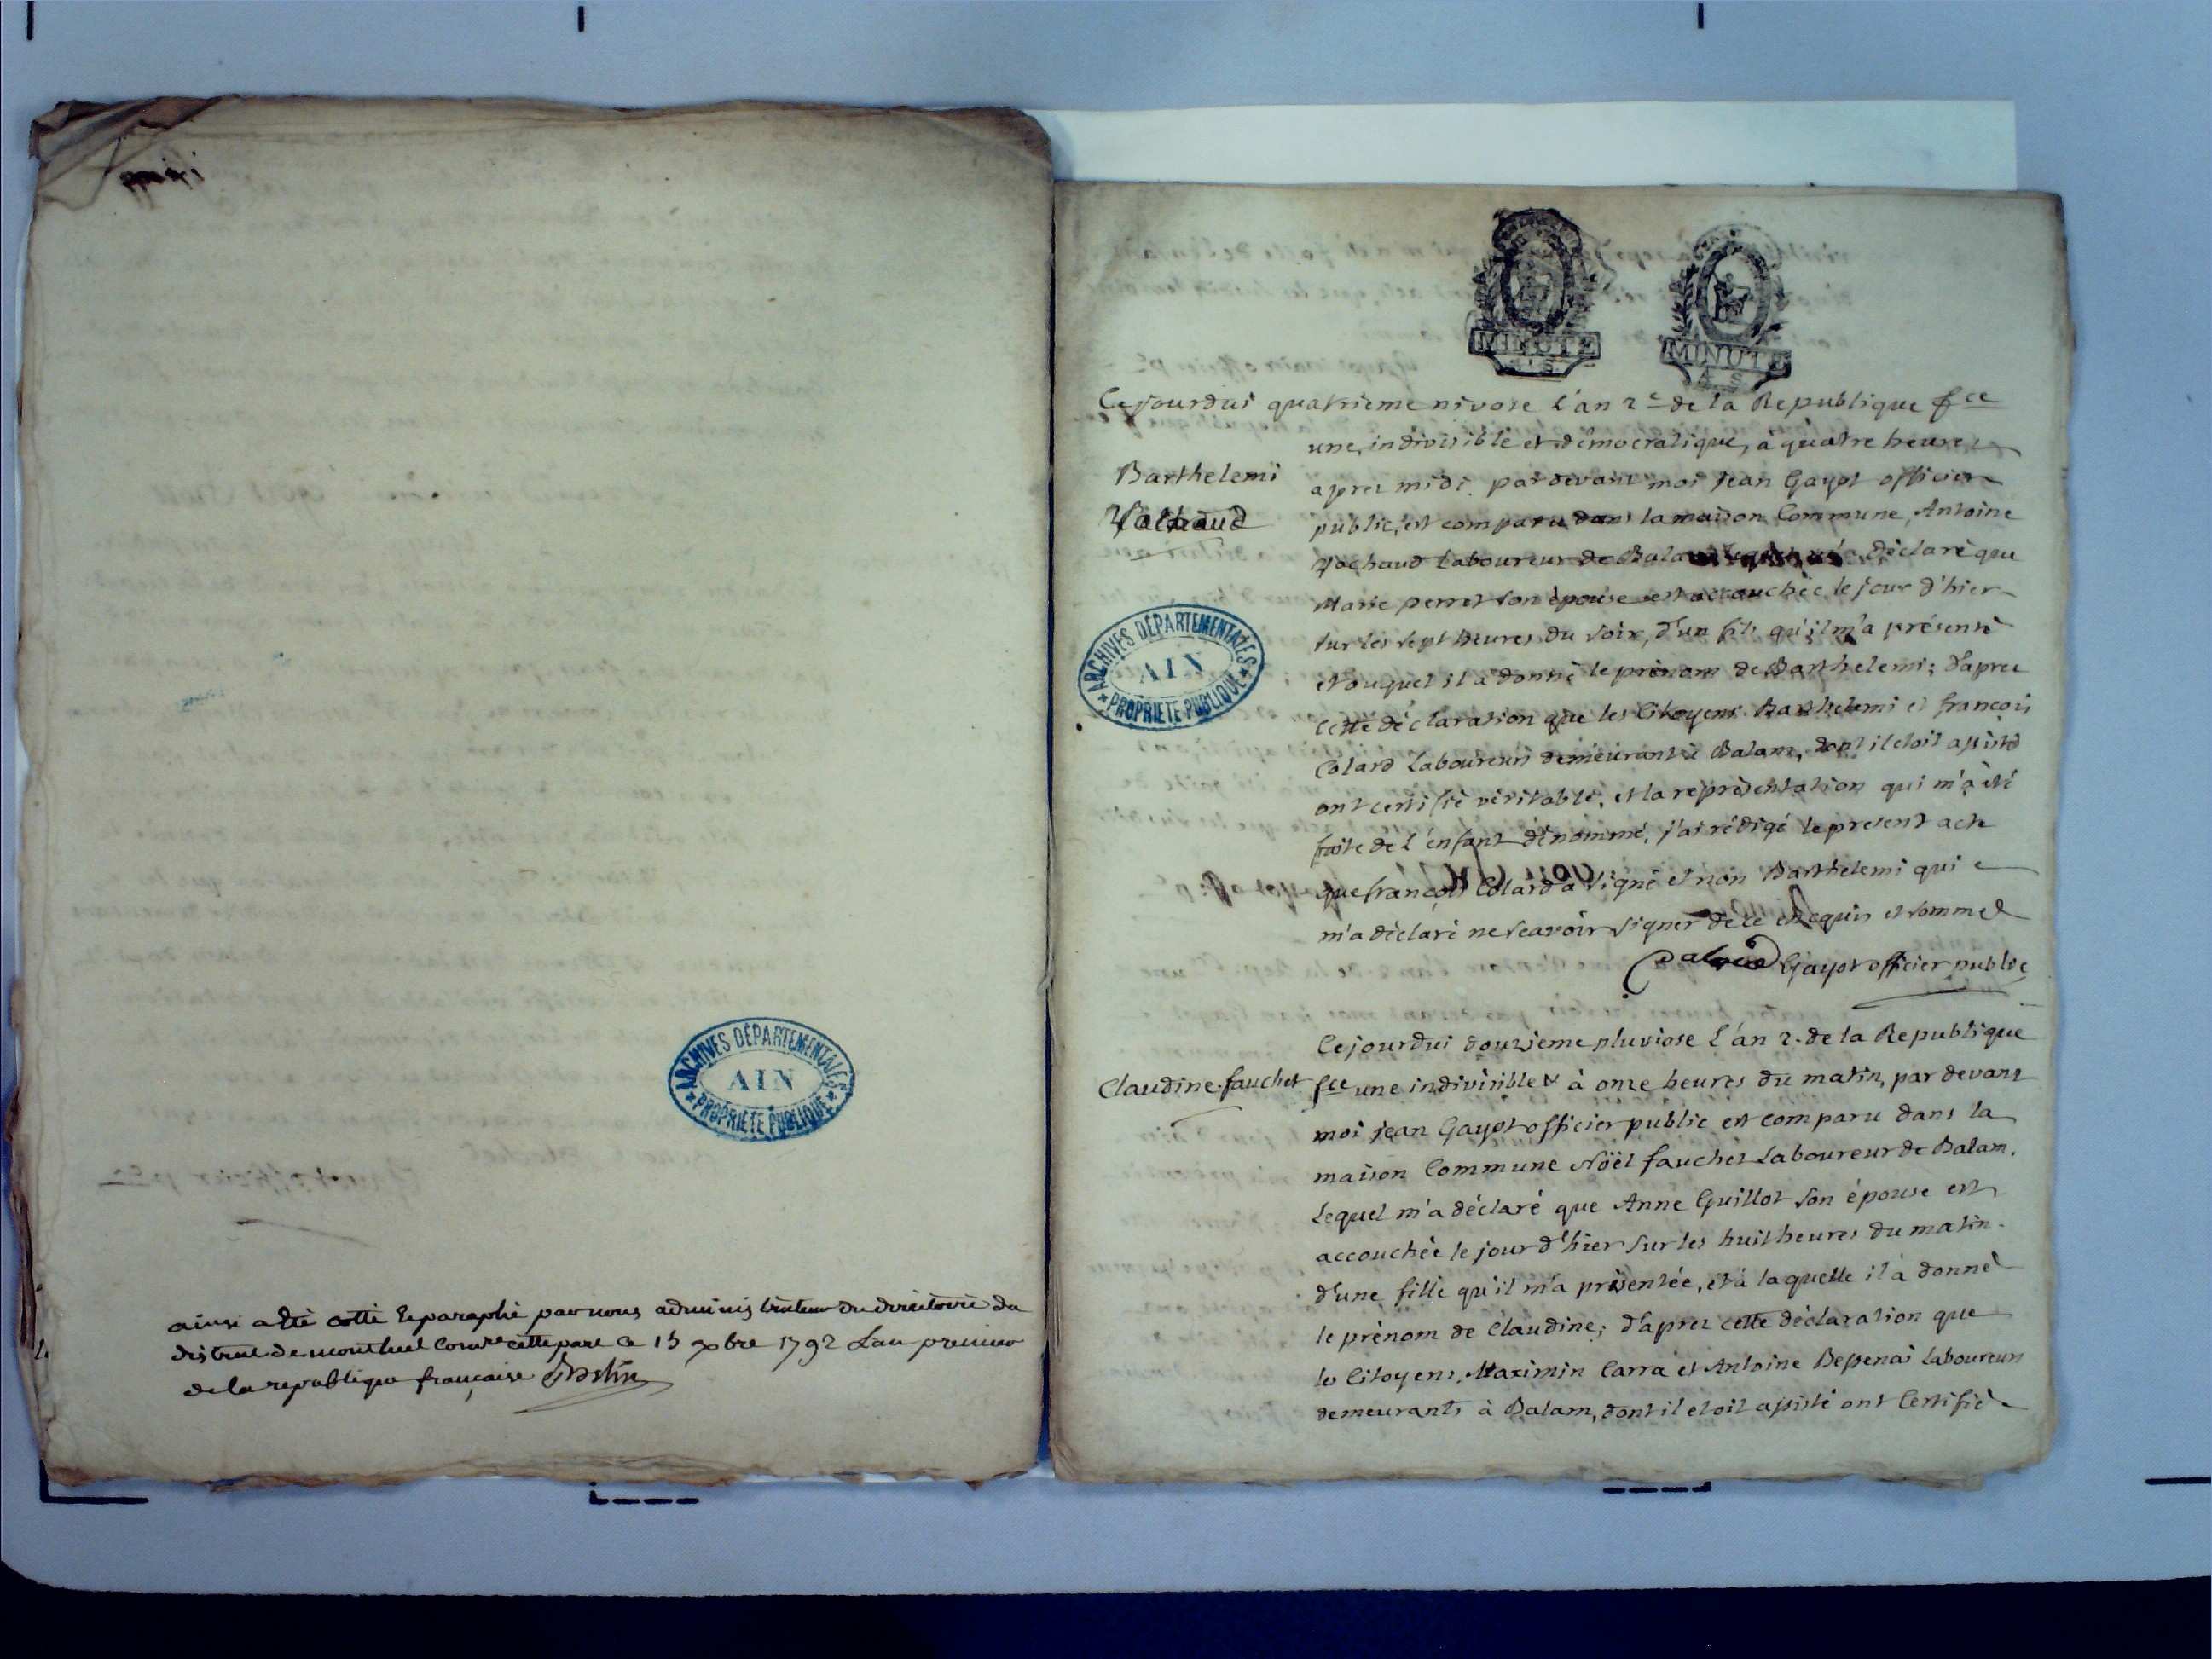 ARCHIVES DÉPARTEMENTALES
AIN
PROPRIÉTÉ PUBLIQUE
ainsi a été cotté et paraphé par nous administrateur du directoire du
district de montluel cette part ce 15 xbre 1792 L'an premier
de la republique françoise
MINUTE
MINUTE
4 S
Cejourdui quatrieme nivose L'an 2e de la Republique fce
une, indivisible et démocratique, à quatre heures
Barthelemi
apres midi. pardevant moi Jean Gayot officier
Vachaud
public, est comparu dans la maison Commune, Antoine
Vachaud Laboureur de déclaré que
Marie perret son épouse est accouchée le jour d'hier
sur les sept heures du soir, d'un fils qu'il m'a présenté
et duquel il a donné le prénom de Barthelemi; d'apres
cette déclaration que les Citoyens Barthelemi et françois
Colard Laboureurs demeurants à Balam, dont il etoit assisté
ont certifié véritable, et la représentation qui m'a été
faite de l'enfant dénommé, j'ai rédigé le present acte
que françois Colard a signé et non Barthelemi qui
m'a déclaré ne scavoir signer de ce enquis et sommé
Gayot officier public
ARCHIVES DÉPARTEMENTALES
AIN
PROPRIÉTÉ PUBLIQUE
Cejourdui douzieme pluviose L'an 2. de la Republique
Claudine fauchet
fce une indivisible & à onze heures du matin, par devant
moi jean Gayot officier public est comparu dans la
maison Commune Noël fauchet Laboureur de Balam.
Lequel m'a déclaré que Anne Guillot son épouse est
accouchée le jour d'hier sur les huit heures du matin.
d'une fille qu'il m'a présentée, et à laquelle il a donné
le prénom de Claudine; d'apres cette déclaration que
les Citoyens, Maximin Carra et Antoine Bessenai Laboureurs
demeurants à Balam, dont il etoit assisté ont Certifié